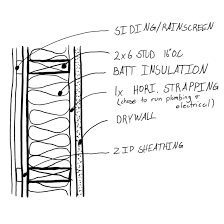 SIDING/RAINSCREEN
2x6 STUD 16"OC
BATT INSULATION
1x HORI. STRAPPING
(chase to run plumbing +
electrical)
DRYWALL
ZIP SHEATHING